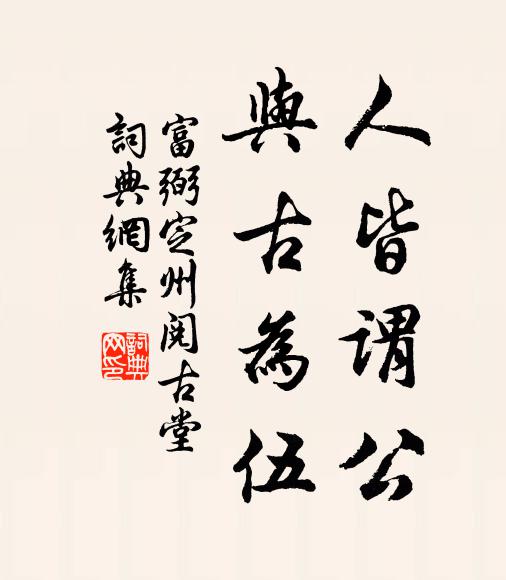 人皆謂公
與古為伍
富弼定州閱古堂
詞典網集
詞典网印